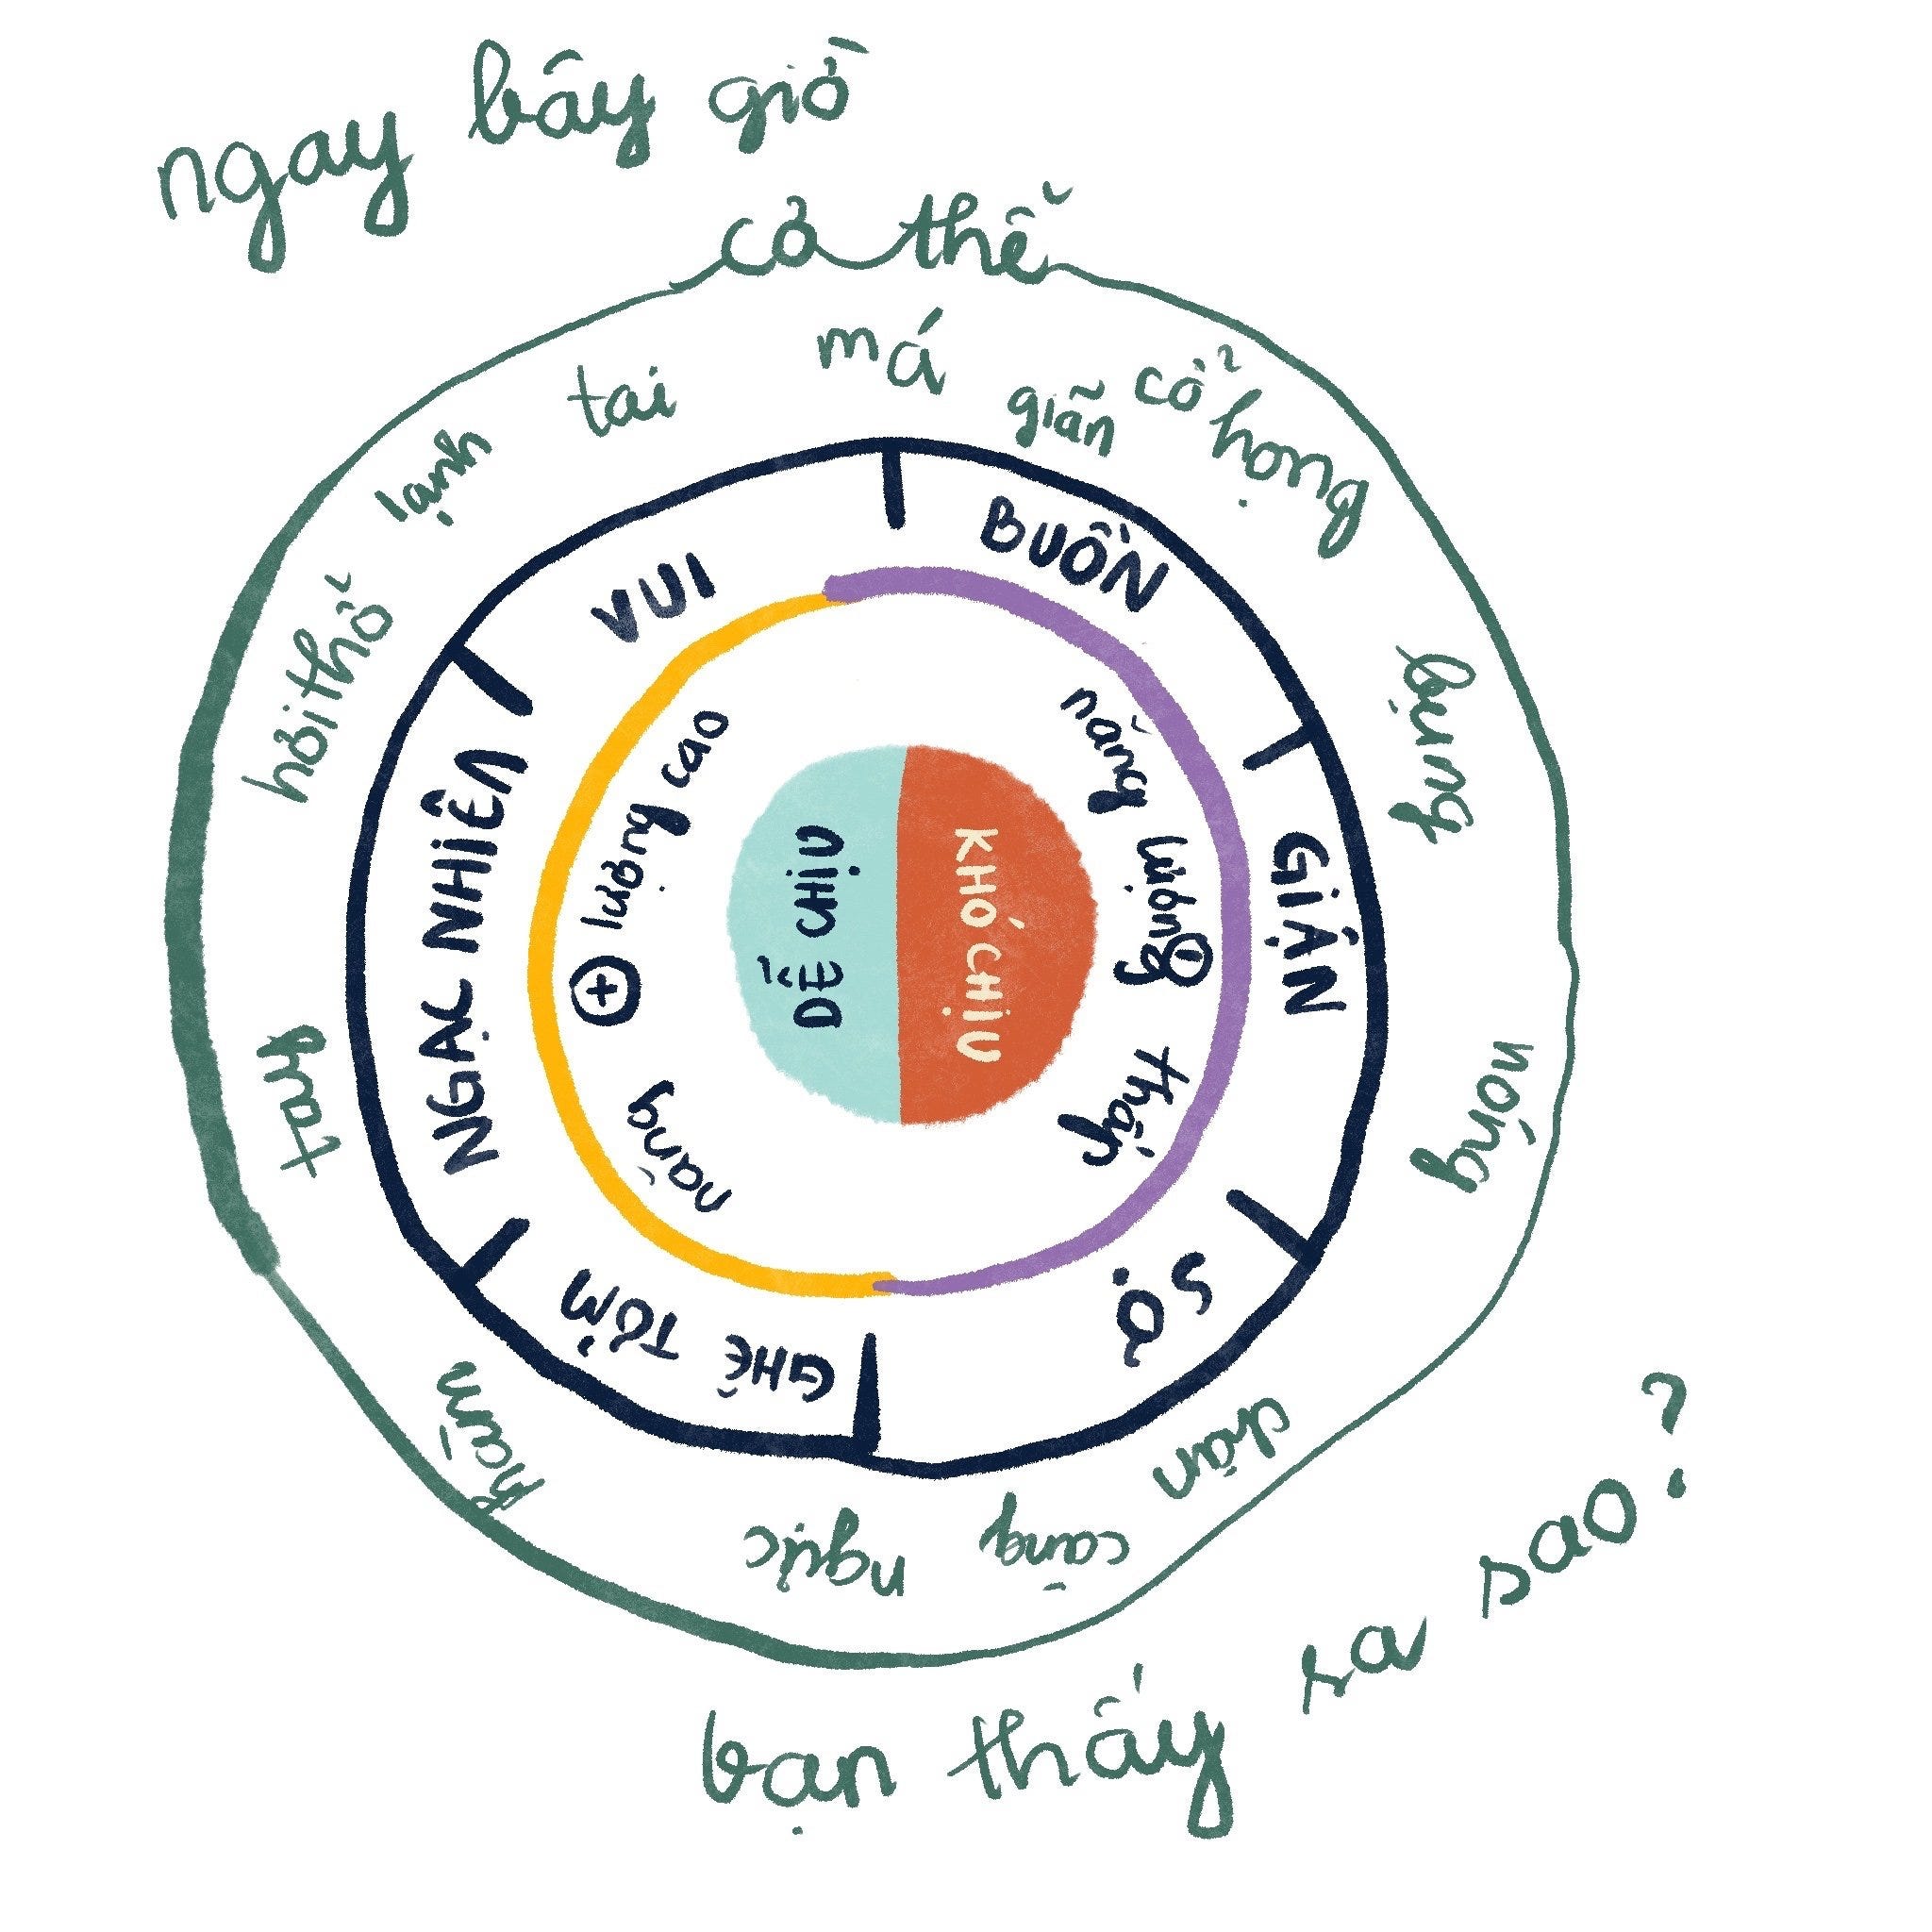 ngay bây giờ
cơ thể
má
giãn
cổ họng
bụng
nóng
chân
căng
ngực
hàm
tay
hơi thở
lạnh
tai
VUI
BUỒN
GIẬN
SỢ
GHÊ TỞM
NGẠC NHIÊN
năng lượng cao
+
năng lượng thấp
-
DỄ CHỊU
KHÓ CHỊU
bạn thấy ra sao?